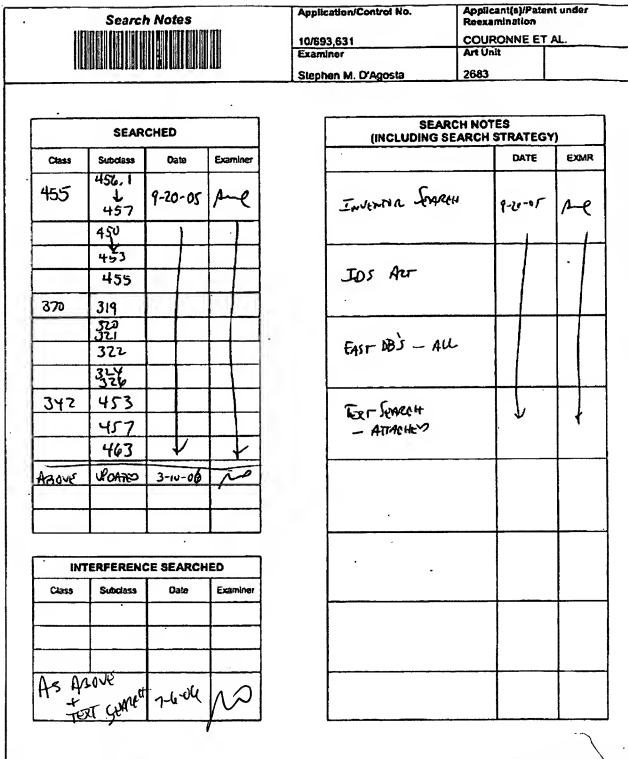 Search Notes
Application/Control No.
10/693,631
Examiner
Stephen M. D'Agosta
Applicant(s)/Patent under
Reexamination
COURONNE ET AL.
Art Unit
2683
SEARCHED
Class Subclass Date Examiner
455 456.1 ↓ 457 9-20-05
450 ↓ 453
455
370 319
320 321
322
324 326
342 453
457
463
ABOVE UPDATED 3-10-06
INTERFERENCE SEARCHED
Class Subclass Date Examiner
AS ABOVE
+ TEXT SEARCH 7-6-06
SEARCH NOTES
(INCLUDING SEARCH STRATEGY)
DATE EXMR
INVENTOR SEARCH 9-20-05
IDS ART
EAST DB'S - ALL
TEXT SEARCH
- ATTACHED